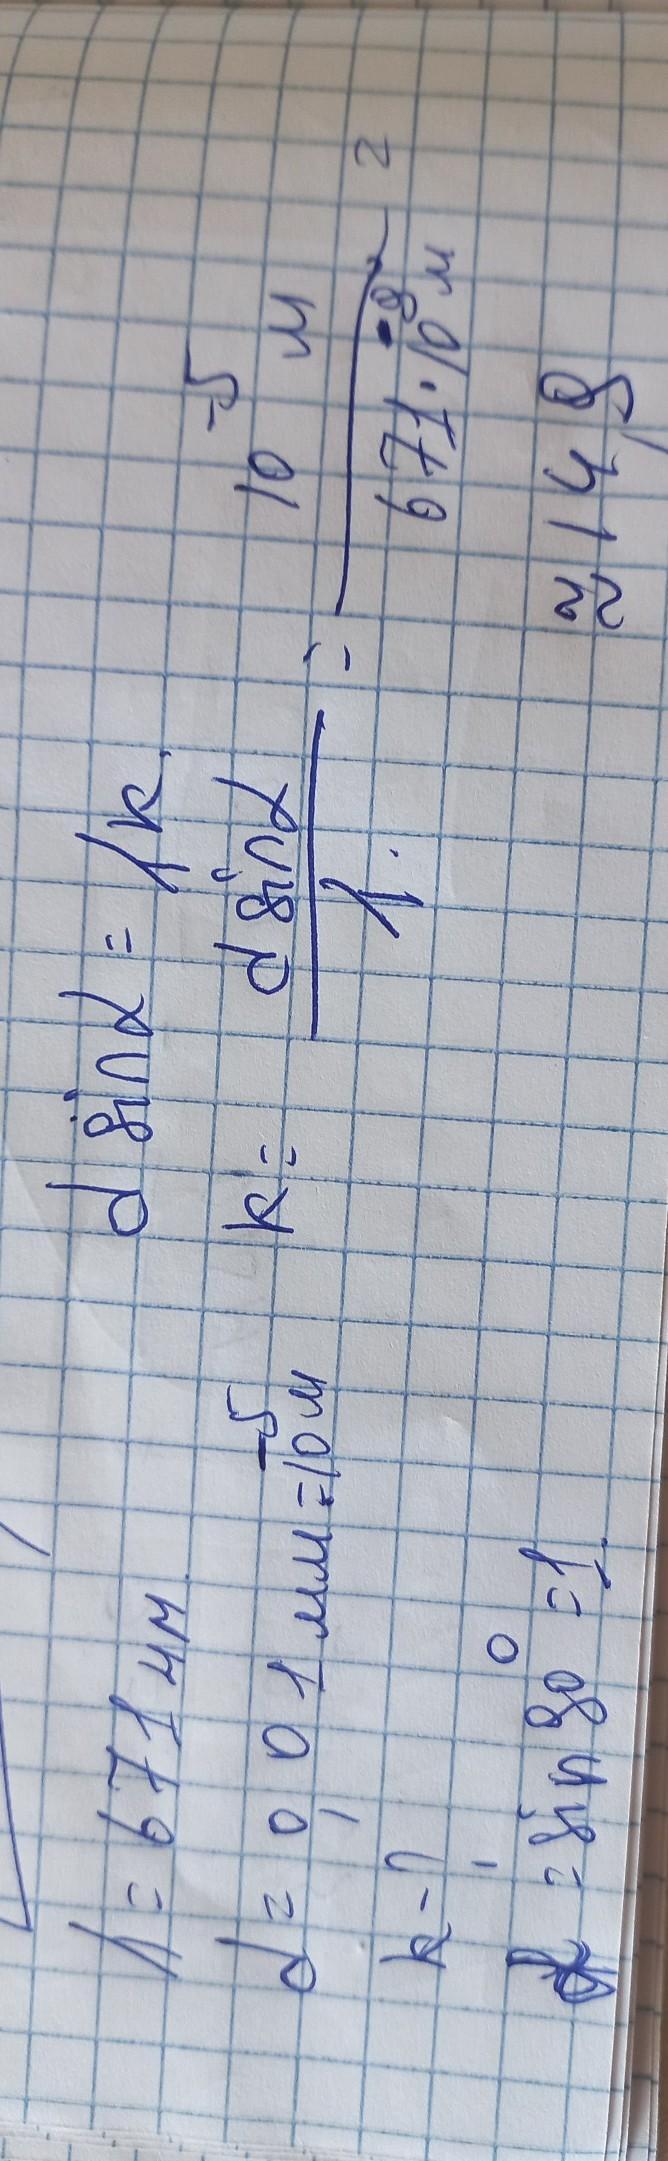 λ = 671 нм
d = 0,01 мм = 10⁻⁵ м
k - ?
= sin 90° = 1.
d sin α = λk.
k = d sin α / λ. = 10⁻⁵ м / 671·10⁻⁹ м ≈
≈ 14,8